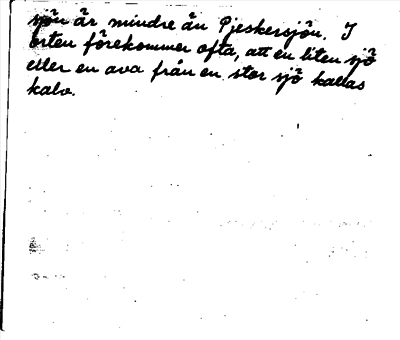 sjön är mindre än Pjeskersjön. I
orten förekommer ofta, att en liten sjö
eller en ava från en stor sjö kallas
kalv.